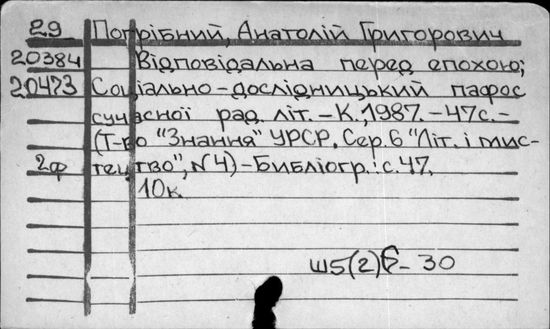 29 Погрібний, Анатолій Григорович
20384 Відповідальна перед епохою;
20473 Соціально-дослідницький пафос
сучасної рад. літ. - К., 1987. - 47с. -
(Т-во "Знання" УРСР. Сер. 6 "Літ. і мис-
2ф тецтво", N4) - Библіогр.: с. 47.
10к.
Ш5(2)6 - 30